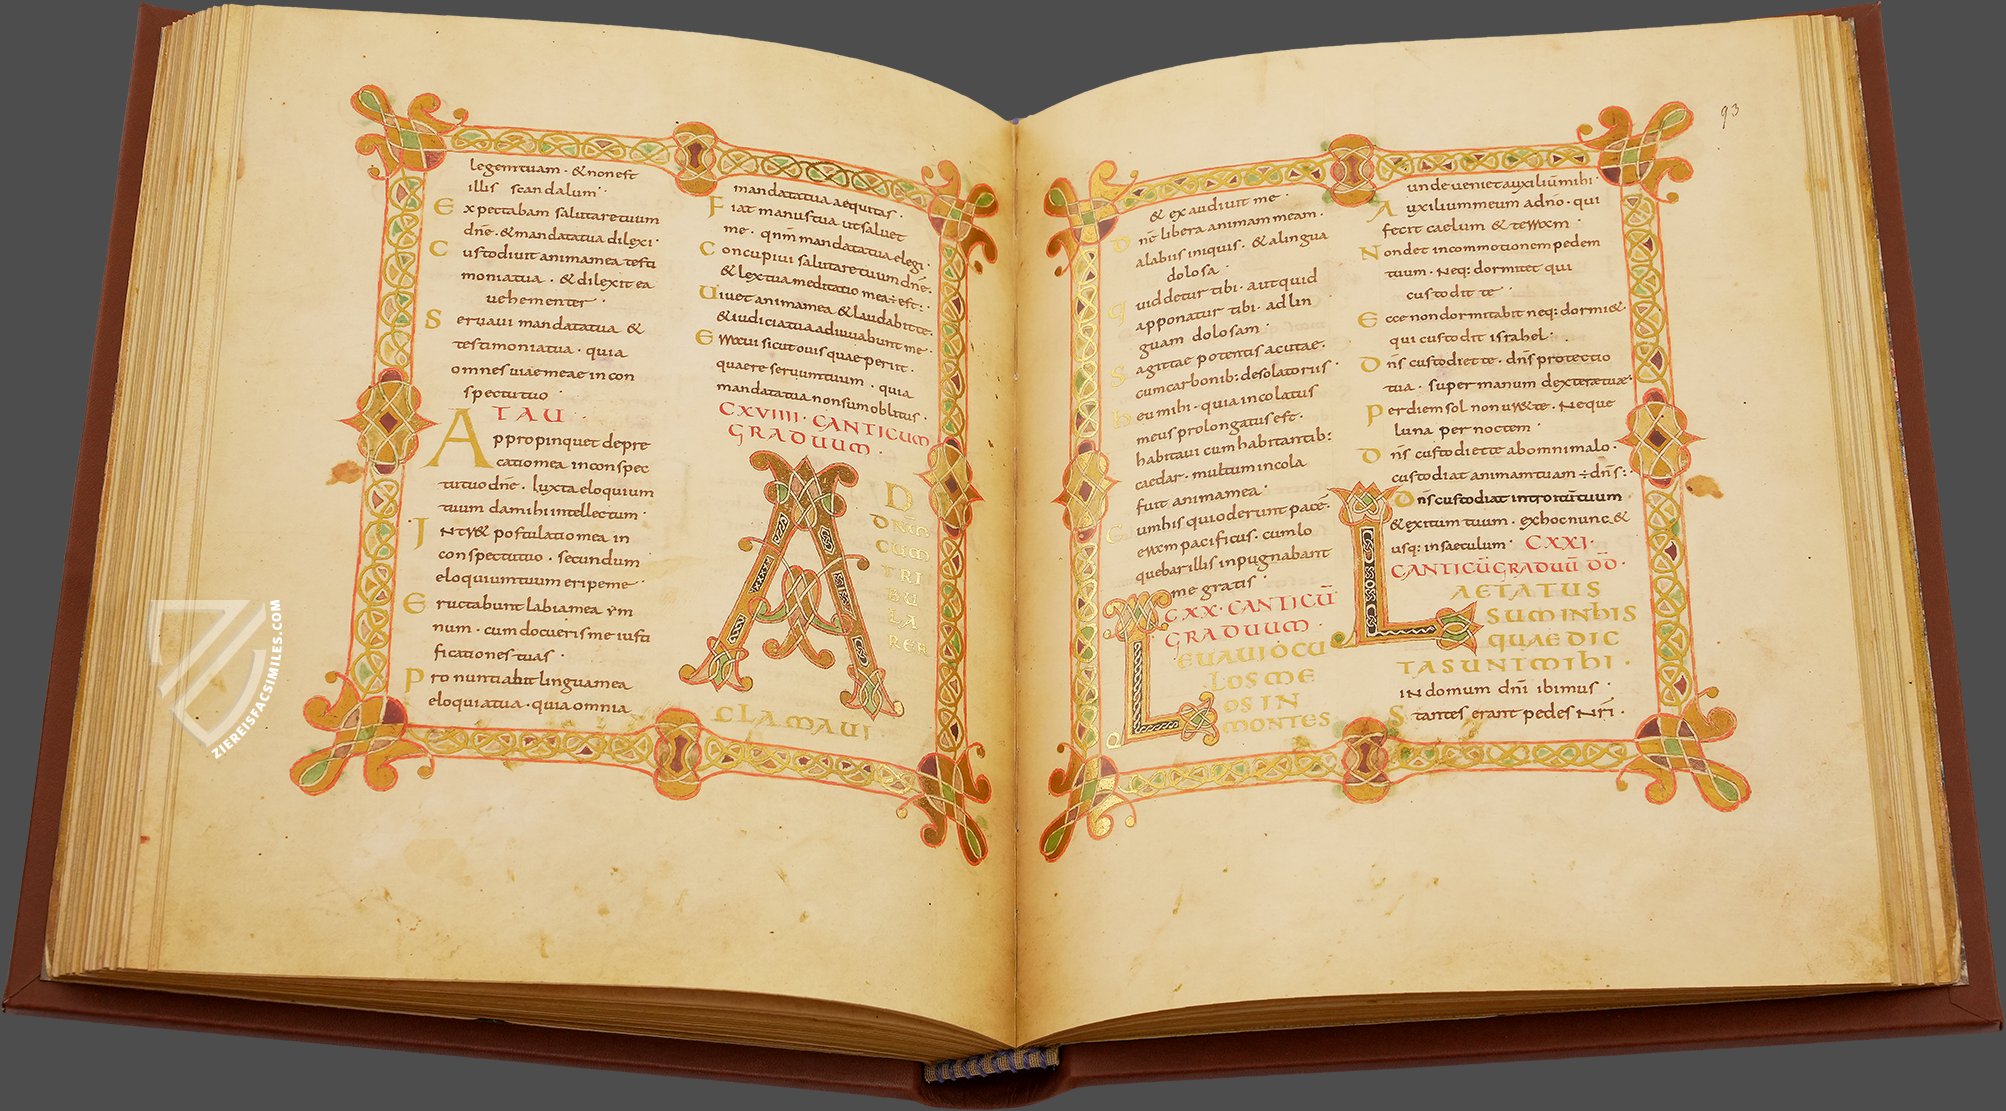 legem tuam · & non est
illis scandalum ·
Expectabam salutare tuum
dn̄e · & mandata tua dilexi ·
Custodiuit anima mea testi
monia tua · & dilexit ea
uehementer ·
Seruaui mandata tua &
testimonia tua · quia
omnes uiae meae in con
spectu tuo ·
TAU
Appropinquet depre
catio mea in conspec
tu tuo dn̄e · Iuxta eloquium
tuum da mihi intellectum ·
INtr& postulatio mea in
conspectu tuo · secundum
eloquium tuum eripe me ·
Eructabunt labia mea ym
num · cum docueris me iusti
ficationes tuas ·
Pronuntiabit lingua mea
eloquia tua · quia omnia
mandata tua aequitas ·
Fiat manus tua ut saluet
me · qnm̄ mandata tua elegi ·
Concupiui salutare tuum dn̄e ·
& lex tua meditatio mea ÷ est : ·
Uiuet anima mea & laudabit te ·
& iudicia tua adiuuabunt me ·
Erraui sicut ouis quae periit ·
quaere seruum tuum · quia
mandata tua non sum oblitus ·
CXVIIII · CANTICUM
GRADUUM ·
AD
DNM
CUM
TRI
BU
LA
RER
CLAMAUI ·
93
& exaudiuit me ·
Dn̄e libera animam meam ·
a labiis iniquis · & a lingua
dolosa ·
Quid detur tibi · aut quid
apponatur tibi · ad lin
guam dolosam ·
Sagittae potentis acutae ·
cum carbonib: desolatoriis ·
Heu mihi · quia incolatus
meus prolongatus est ·
habitaui cum habitantib:
caedar · multum incola
fuit anima mea ·
Cum his qui oderunt pacē ·
eram pacificus · cum lo
quebar illis inpugnabant
me gratis ·
CXX · CANTICŪ
GRADUUM ·
LEUAUI OCU
LOS ME
OS IN
MONTES
unde veniet auxiliū mihi ·
Auxilium meum a dn̄o · qui
fecit caelum & terram ·
Non det in commotionem pedem
tuum · Neq: dormitet qui
custodit te ·
Ecce non dormitabit neq: dormi&
qui custodit israhel ·
Dn̄s custodit te · dn̄s protectio
tua · super manum dexterā tuā ·
Per diem sol non ur& te · Neque
luna per noctem ·
Dn̄s custodit te ab omni malo ·
custodiat animam tuam ÷ dn̄s : ·
Dn̄s custodiat introitū tuum
& exitum tuum · ex hoc nunc &
usq: in saeculum · CXXI ·
CANTICŪ GRADUŪ D̄D̄ ·
LAETATUS
SUM IN HIS
QUAE DIC
TA SUNT MIHI ·
IN domum dn̄i ibimus ·
Stantes erant pedes Nr̄i ·
ZIEREISFACSIMILES.COM